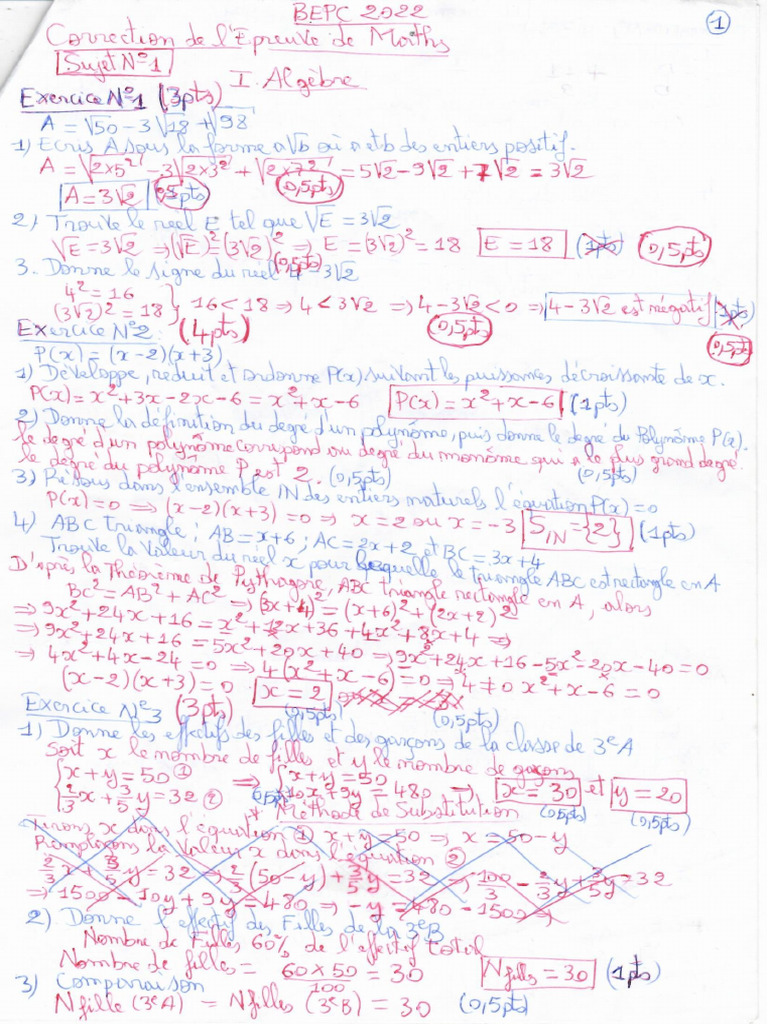 BEPC 2022
1
Correction de l'Epreuve de Maths
Sujet N°1
I. Algèbre
Exercice N°1 (3pts)
A = √50 - 3√18 + √98
1) Ecris A sous la forme a√b où a et b des entiers positif.
A = √2×5² - 3√2×3² + √2×7² = 5√2 - 9√2 + 7√2 = 3√2
A = 3√2 (0,5pts) (0,5pts)
2) Trouve le réel E tel que √E = 3√2
√E = 3√2 ⇒ (√E)² = (3√2)² ⇒ E = (3√2)² = 18 E = 18 (1pts) (0,5pts)
(0,5pts)
3. Donne le signe du réel 4 - 3√2
4² = 16
(3√2)² = 18 } 16 < 18 ⇒ 4 < 3√2 ⇒ 4 - 3√2 < 0 ⇒ 4 - 3√2 est négatif (1pts)
(0,5pts) (0,5pts)
Exercice N°2 : (4pts)
P(x) = (x-2)(x+3)
1) Développe, réduit et ordonne P(x) suivant les puissances décroissante de x.
P(x) = x² + 3x - 2x - 6 = x² + x - 6 P(x) = x² + x - 6 (1pts)
2) Donne la définition du degré d'un polynôme, puis donne le degré du Polynôme P(x).
le degré d'un polynôme correspond au degré du monôme qui a le plus grand degré.
le degré du polynome P est 2. (0,5pts) (0,5pts)
3) Résous dans l'ensemble IN des entiers naturels l'équation P(x) = 0
P(x) = 0 ⇒ (x-2)(x+3) = 0 ⇒ x = 2 ou x = -3 S_IN = {2} (1pts)
4) ABC triangle ; AB = x+6 ; AC = 2x+2 et BC = 3x+4
Trouve la valeur du réel x pour laquelle le triangle ABC est rectangle en A
D'après la Théorème de Pythagore, ABC triangle rectangle en A, alors
BC² = AB² + AC² ⇒ (3x+4)² = (x+6)² + (2x+2)²
⇒ 9x² + 24x + 16 = x² + 12x + 36 + 4x² + 8x + 4 ⇒
⇒ 9x² + 24x + 16 = 5x² + 20x + 40 ⇒ 9x² + 24x + 16 - 5x² - 20x - 40 = 0
⇒ 4x² + 4x - 24 = 0 ⇒ 4(x² + x - 6) = 0 ⇒ 4 ≠ 0 x² + x - 6 = 0
(x-2)(x+3) = 0 x = 2
(0,5pts) (0,5pts)
Exercice N°3 (3pts)
1) Donne les effectifs des filles et des garçons de la classe de 3e A
Soit x le nombre de filles et y le nombre de garçons
{ x + y = 50 ① ⇒ { x + y = 50
{ 2/3 x + 3/5 y = 32 ② { 10x + 9y = 480 → x = 30 et y = 20
0,5pts (0,5pts) (0,5pts)
* Méthode de Substitution
Tirons x dans l'équation ① x + y = 50 ⇒ x = 50 - y
Remplaçons la valeur x dans l'équation ②
2/3 x + 3/5 y = 32 ⇒ 2/3 (50 - y) + 3/5 y = 32 ⇒ 100/3 - 2/3 y + 3/5 y = 32
⇒ 1500 - 10y + 9y = 480 ⇒ -y = 480 - 1500 ⇒
2) Donne l'effectif des Filles de la 3e B
Nombre de Filles 60% de l'effectif total
Nombre de filles = 60 × 50 / 100 = 30 Nfilles = 30 (1pts)
3) Comparaison
Nfille (3e A) = Nfilles (3e B) = 30 (0,5pts)